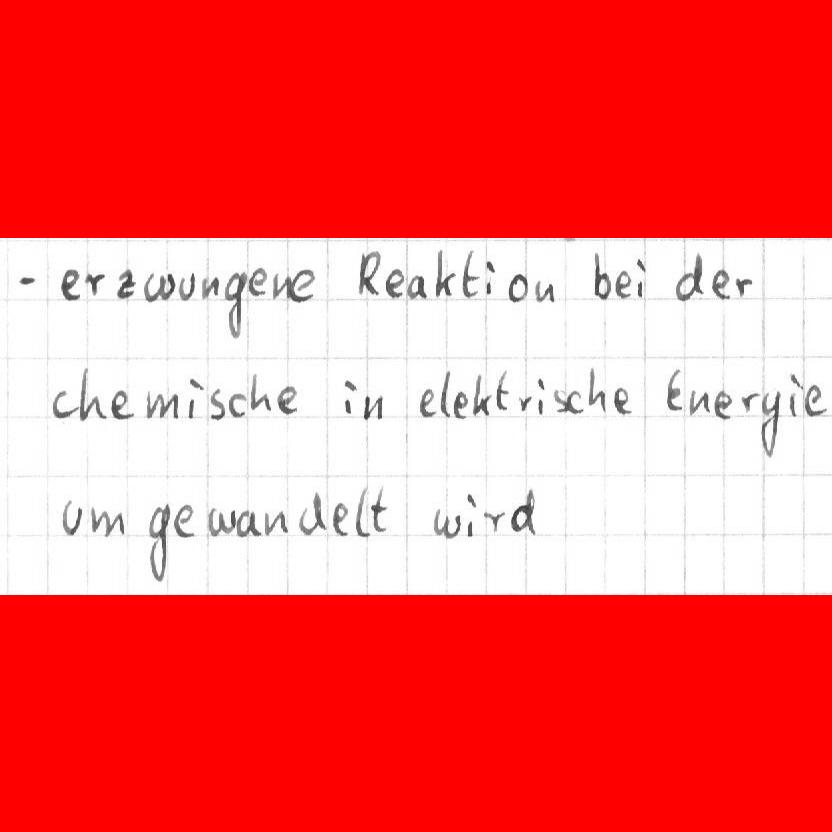 - erzwungene Reaktion bei der
chemische in elektrische Energie
umgewandelt wird